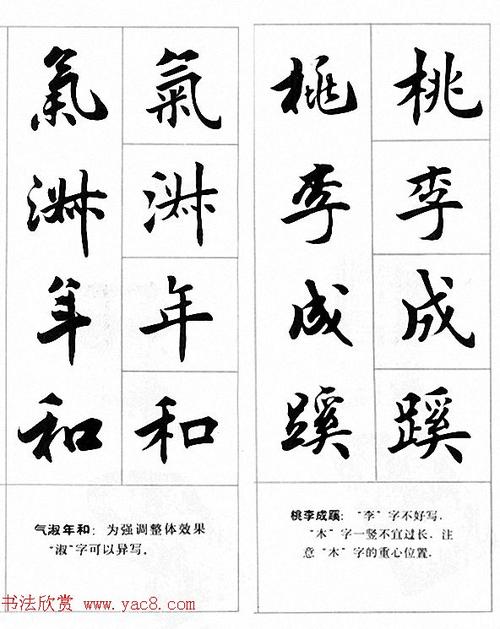 桃李成蹊
桃李成蹊
桃李成蹊：“李”字不好写．
“木”字一竖不宜过长．注
意“木”字的重心位置．
氣淑年和
氣淑年和
气淑年和：为强调整体效果
“淑”字可以异写．
书法欣赏 www.yac8.com